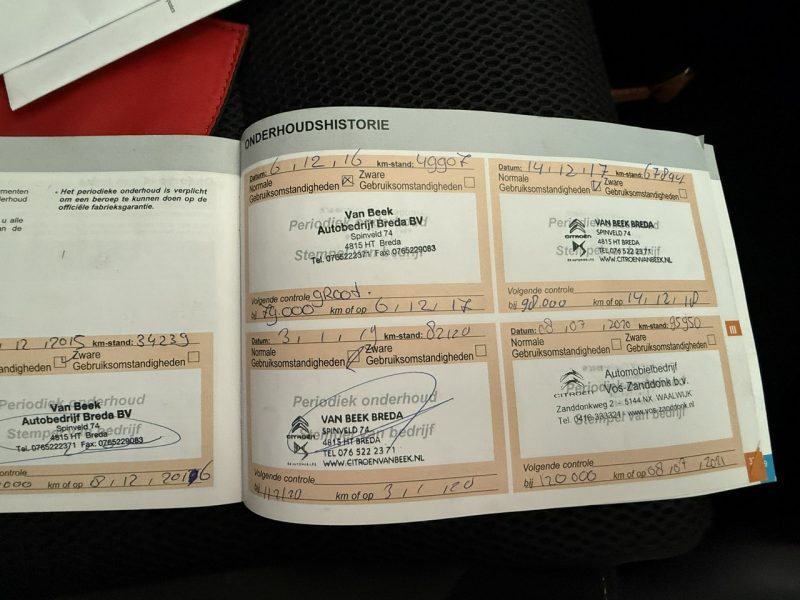 menten
derhoud
u alle
an de
• Het periodieke onderhoud is verplicht
om een beroep te kunnen doen op de
officiële fabrieksgarantie.
12, 2015 km-stand: 34239
Zware
standigheden Gebruiksomstandigheden
Periodiek onderhoud
Stempel van bedrijf
Van Beek
Autobedrijf Breda BV
Spinveld 74
4815 HT Breda
Tel. 0765222371 Fax: 0765229083
controle
000 km of op 8, 12, 2016
ONDERHOUDSHISTORIE
Datum: 6, 12, 16 km-stand: 49907
Normale Zware
Gebruiksomstandigheden Gebruiksomstandigheden
Periodiek onderhoud
Stempel van bedrijf
Van Beek
Autobedrijf Breda BV
Spinveld 74
4815 HT Breda
Tel. 0765222371 Fax: 0765229083
Volgende controle groot.
bij 79.000 km of op 6, 12, 17
Datum: 14, 12, 17 km-stand: 67894
Normale Zware
Gebruiksomstandigheden Gebruiksomstandigheden
Periodiek onderhoud
Stempel van bedrijf
CITROËN
VAN BEEK BREDA
SPINVELD 74
4815 HT BREDA
TEL 076 522 23 71
WWW.CITROENVANBEEK.NL
Volgende controle
bij 98.000 km of op 14, 12, 18
Datum: 3, 1, 19 km-stand: 82120
Normale Zware
Gebruiksomstandigheden Gebruiksomstandigheden
Periodiek onderhoud
Stempel van bedrijf
CITROËN
VAN BEEK BREDA
SPINVELD 74
4815 HT BREDA
TEL 076 522 23 71
WWW.CITROENVANBEEK.NL
Volgende controle
bij km of op 3, 1, 20
Datum: 08, 07, 2020 km-stand: 95950
Normale Zware
Gebruiksomstandigheden Gebruiksomstandigheden
Periodiek onderhoud
Stempel van bedrijf
CITROËN
Automobielbedrijf
Vos-Zanddonk b.v.
Zanddonkweg 2 - 5144 NX WAALWIJK
Tel. 0416-333321 - www.vos-zanddonk.nl
Volgende controle
bij 120.000 km of op 08, 07, 2021
III